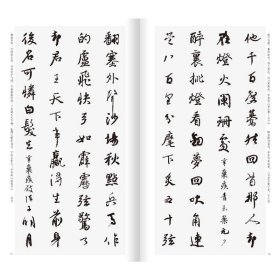 他千百度回首那人却
在燈火闌珊處 辛棄疾青玉案元夕
醉裏挑燈看劍夢回吹角連
營八百里分麾下炙五十弦
翻塞外聲沙場秋點兵馬作
的盧飛快弓如霹靂弦驚了
却君王天下事贏得生前身
後名可憐白髮生 辛棄疾破陣子 明月